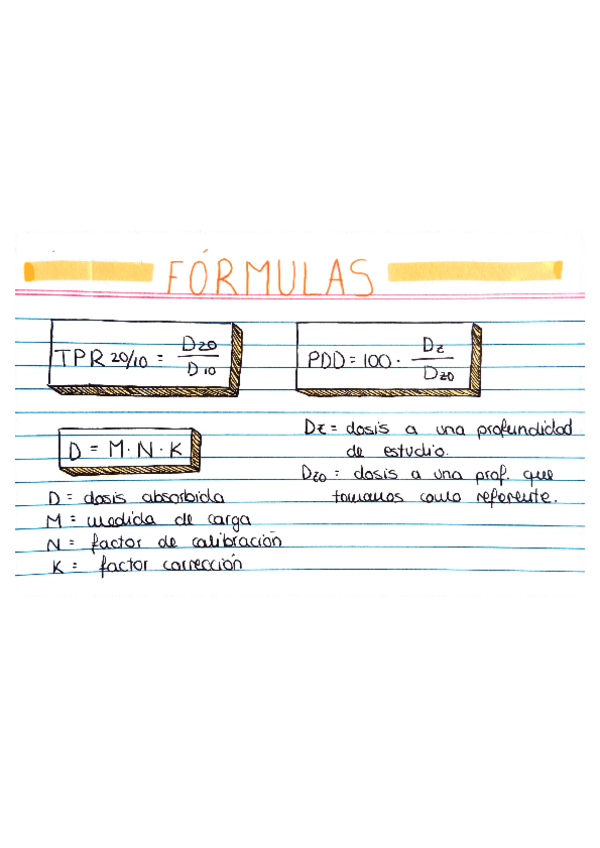 FÓRMULAS
TPR 20/10 = D20 / D10
PDD = 100 · Dz / Dz0
D = M · N · K
D = dosis absorbida
M = medida de carga
N = factor de calibración
K = factor corrección
Dz = dosis a una profundidad
de estudio.
Dz0 = dosis a una prof. que
tomamos como referente.